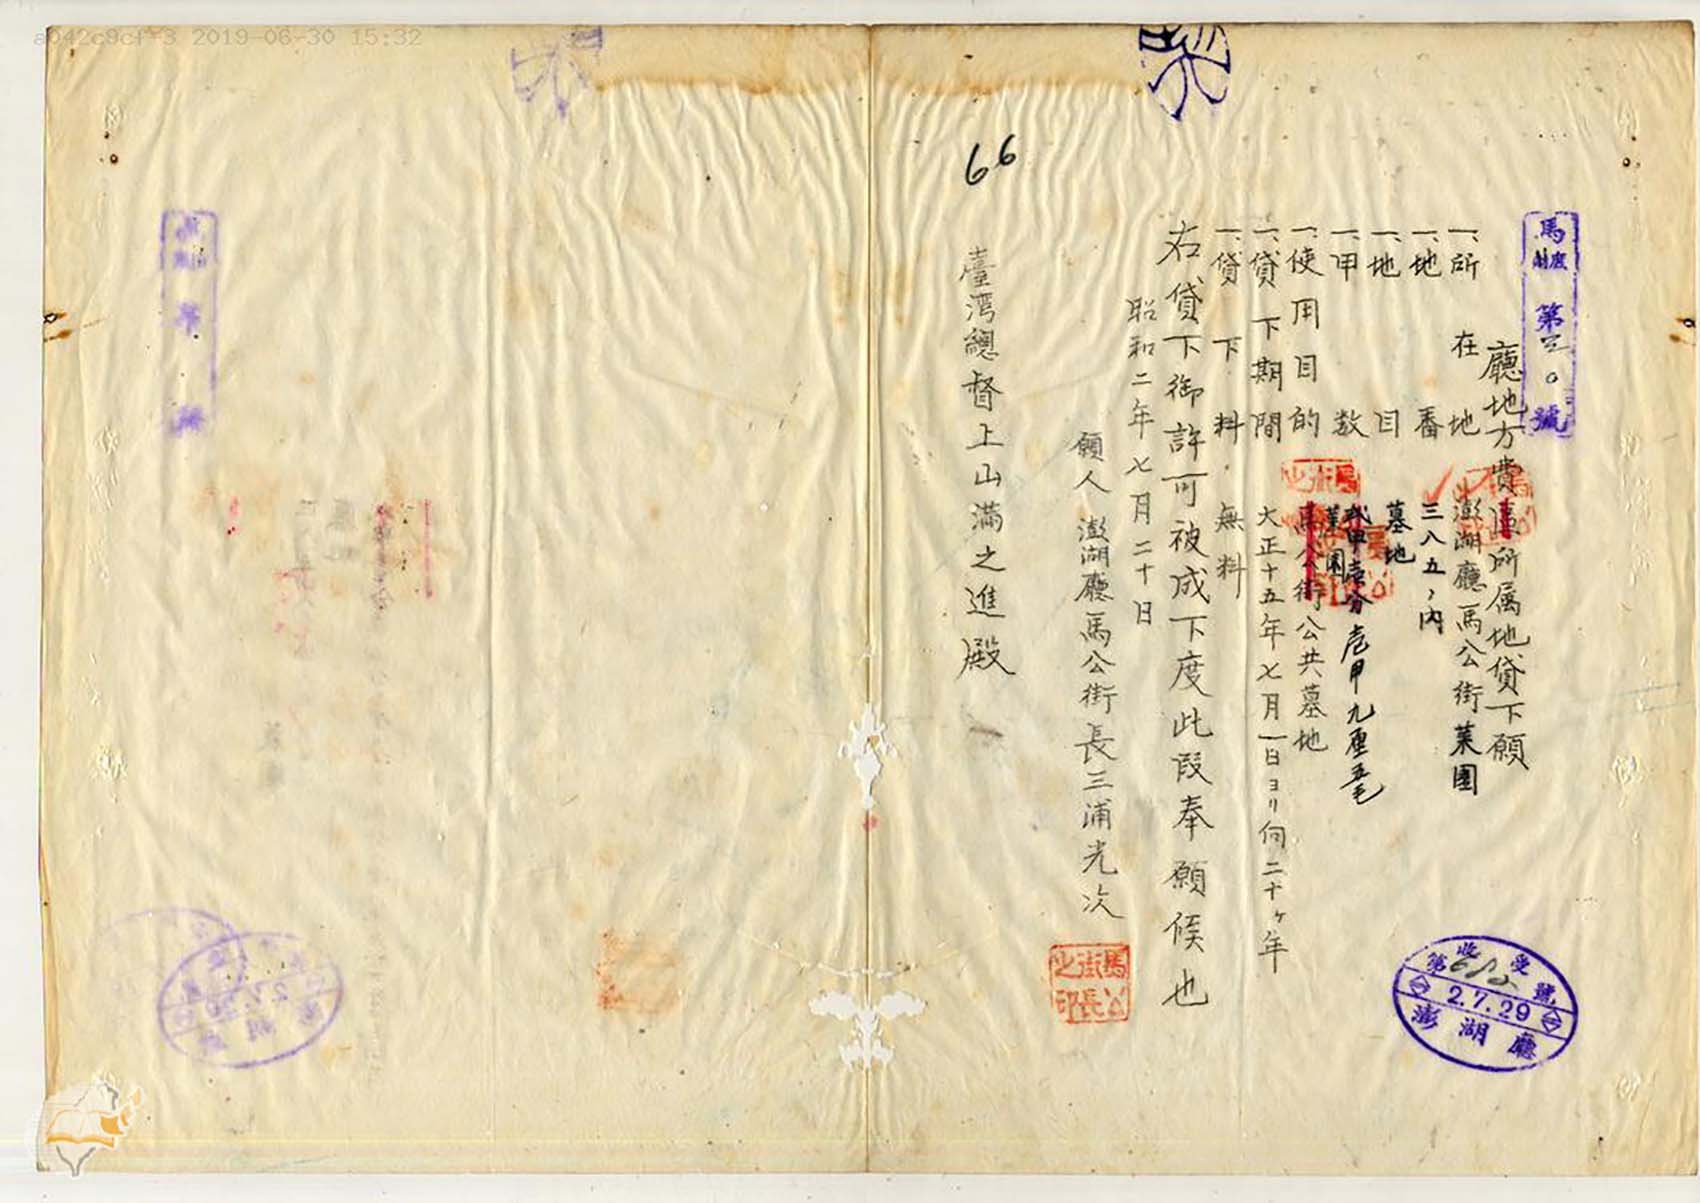 a042c9cf-3 2019-06-30 15:32
66
馬庶財 第三〇號
廳地方費所属地貸下願
一、所在地 澎湖廳馬公街菜園
一、地番 三八五ノ内
一、地目 墓地
一、甲数 壱甲九厘五毛
一、使用目的 馬公街公共墓地
一、貸下期間 大正十五年七月一日ヨリ向二十ヶ年
一、貸下料 無料
右貸下御許可被成下度此段奉願候也
昭和二年七月二十日
願人 澎湖廳馬公街長三浦光次
馬公街長之印
臺灣總督上山滿之進殿
收受
第682號
2.7.29
澎湖廳